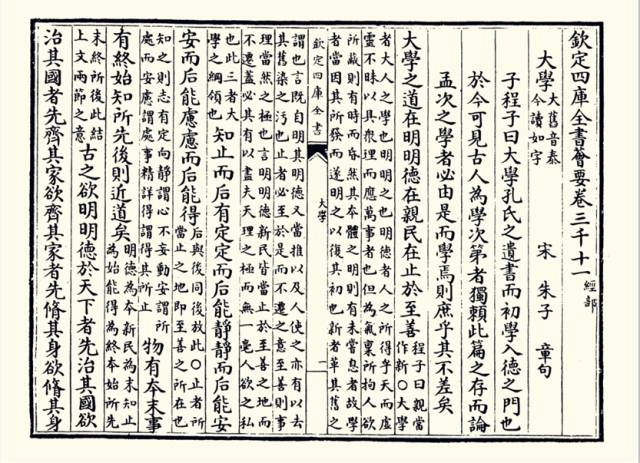 欽定四庫全書薈要卷三千十一 經部
大學 大舊音泰今讀如字 宋 朱子 章句
子程子曰大學孔氏之遺書而初學入德之門也
於今可見古人為學次第者獨賴此篇之存而論
孟次之學者必由是而學焉則庶乎其不差矣
大學之道在明明德在親民在止於至善 程子曰親當作新〇大學
者大人之學也明明之也明德者人之所得乎天而虛
靈不昧以具衆理而應萬事者也但為氣稟所拘人欲
所蔽則有時而昏然其本體之明則有未嘗息者故學
者當因其所發而遂明之以復其初也新者革其舊之
欽定四庫全書 大學 一
謂也言既自明其明德又當推以及人使之亦有以去
其舊染之污也止者必至於是而不遷之意至善則事
理當然之極也言明明德新民皆當止於至善之地而
不遷蓋必其有以盡夫天理之極而無一毫人欲之私
也此三者大學之綱領也 知止而后有定定而后能靜靜而后能安
安而后能慮慮而后能得 后與後同後放此〇止者所當止之地即至善之所在也
知之則志有定向靜謂心不妄動安謂所處而安慮謂處事精詳得謂得其所止 物有本末事
有終始知所先後則近道矣 明德為本新民為末知止為始能得為終本始所先
末終所後此結上文兩節之意 古之欲明明德於天下者先治其國欲
治其國者先齊其家欲齊其家者先脩其身欲脩其身